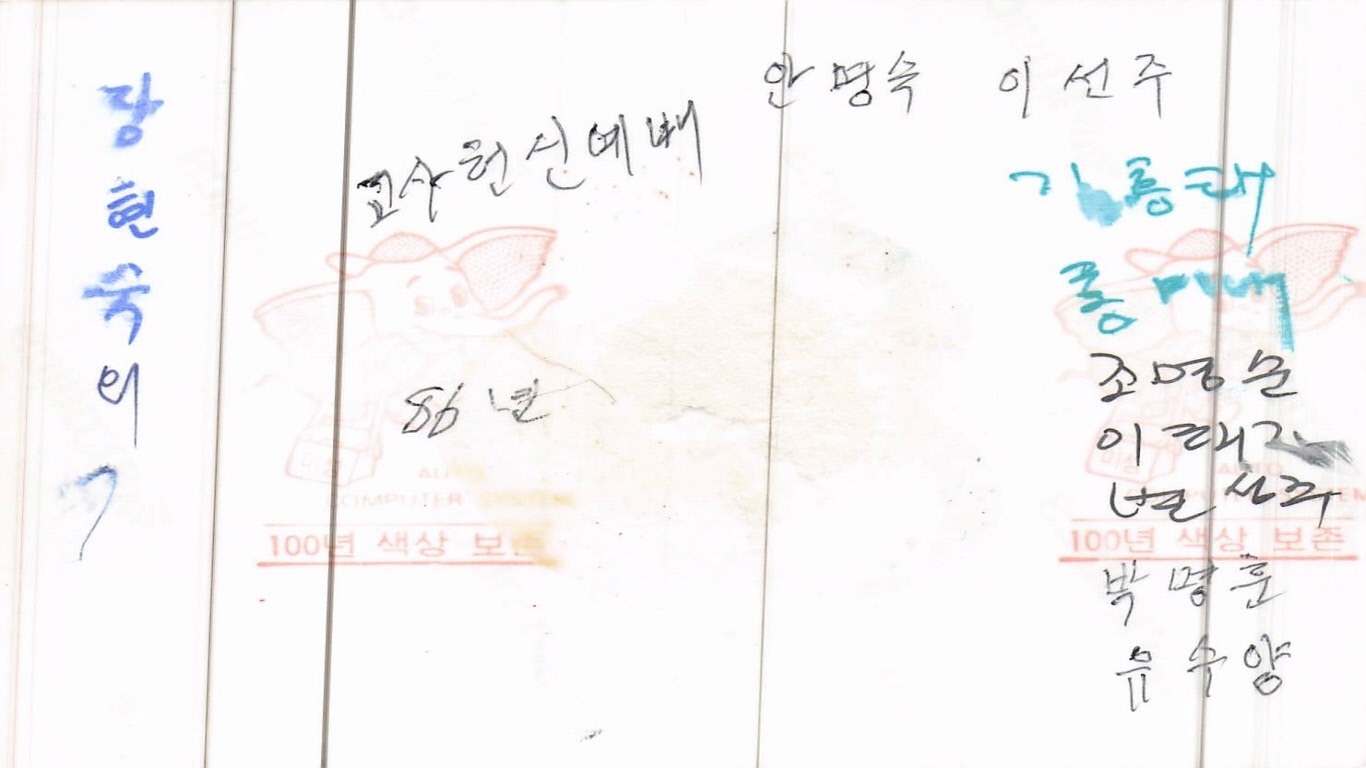 장현숙의
교사헌신예배
86년
안명숙 이선주
김흥태
홍미애
조명순
이태
변상희
박명훈
유수양
미성
AUTO
COMPUTER SYSTEM
100년 색상 보존
미성
AUTO
COMPUTER SYSTEM
100년 색상 보존